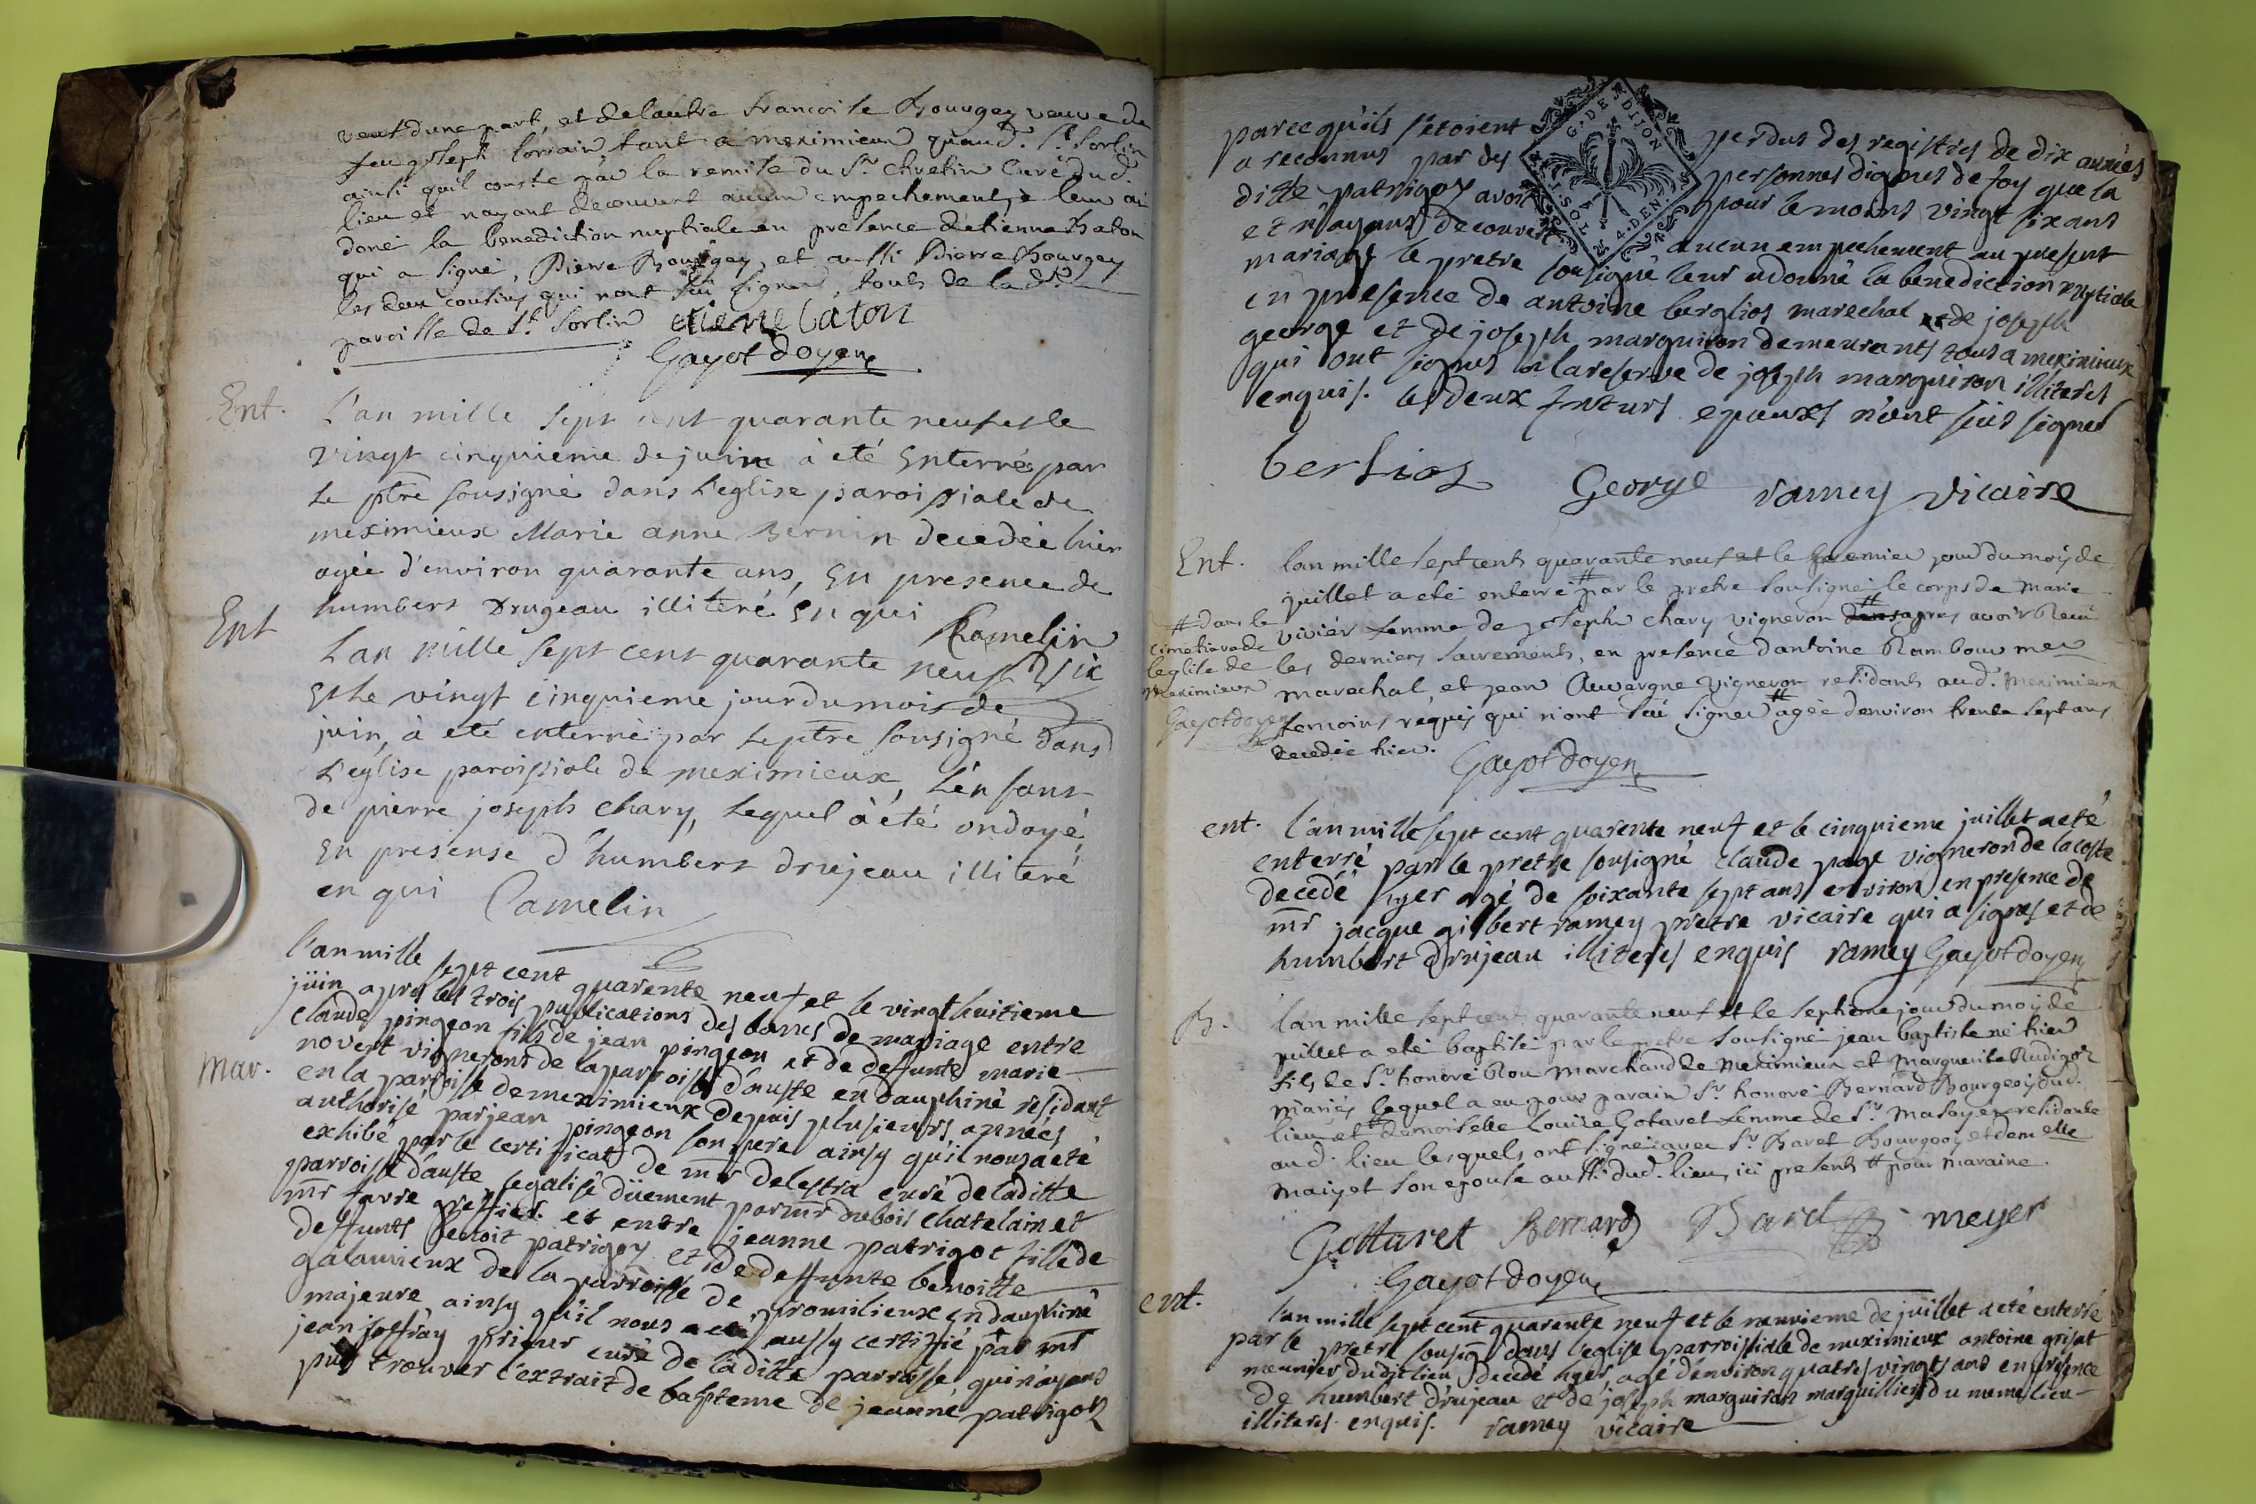 veuf dune part, et delautre francoise Bourgey veuve de
feu joseph lorrain tant a meximieux quaud. St. Sorlin
ainsi quil conste par la remise du Sr. Chretin Curé dud.
lieu et nayant decouvert aucun empechement je leur ai
doné la benediction nuptiale en presence detienne Baton
qui a signé, Pierre Bourgey, et aussi Pierre Bourgey
les deux cousins qui nont sçu signer, touts de lad.
paroisse de St Sorlin etiene baton
Gayot doyen
Ent. L'an mille sept cent quarante neuf et le
vingt cinquieme de juin à eté Enterrée par
Le ptre sousigné dans L'eglise paroissiale de
meximieux Marie anne Bernin decedée hier
agée d'environ quarante ans, En presence de
humbert Drugeau illiteré En qui Camelin
Ent L'an mille sept cent quarante neuf
Et Le vingt cinquieme jour du mois de
juin, à eté enterré par Le ptre sousigné dans
L'eglise paroissiale de meximieux, L'enfant
de pierre joseph chary, Lequel à été ondoyé,
En presense d'humbert drujeau illiteré
en qui Camelin
l'an mille sept cent quarente neuf et le vingt huitieme
juin apres les trois publications des bannes de mariage entre
claude pingeon fils de jean pingeon et de deffunte marie
novert vignerons de la parroisse d'auste en dauphiné residant
Mar. en la parroisse de meximieux depuis plusieurs années
authorisé par jean pingeon son pere ainsy qu'il nous a eté
exhibé par le certificat de mr delestra curé de laditte
parroisse dauste legalisé düement par mr dubois chatelain et
mr favre greffier et entre jeanne patrigot fille de
deffunts benoit patrigoy et de deffunte benoitte
galamieux de la parroisse de promilieux en dauphiné
majeure ainsy qu'il nous a eté aussy certifié par mr
jean joffray prieur curé de laditte parroisse qui n'ayant
pus trouver l'extrait de baptême de jeanne patrigot
parce qu'ils s'etoient perdus des registres de dix années
a reconnus par des personnes dignes de foy que la
ditte patrigoy avoit pour le moins vingt six ans
et n'ayant decouvert aucun empechement au present
mariage le pretre sousigné leur a donné la benediction nuptiale
en presence de antoine berlios marechal et de joseph
george et de joseph marguiron demeurants tous a meximieux
qui ont signés a la reserve de joseph marguiron illiterés
enquis. les deux futurs epouxs n'ont sçus signer
G. DE DIJON
1. SOL. 4. DEN.
berlios George ramey vicaire
Ent. lan mille sept cents quarante neuf et le premier jour du mois de
juillet a eté enterré # par le pretre sousigné le corps de Marie
# dans le
cimetiere de
leglise de
Meximieux
Gayot doyen
vivier femme de joseph chary vigneron dans apres avoir recu
les derniers sacrements, en presence dantoine
marechal, et jean Auvergne vigneron residants aud. Meximieux
temoins réquis qui n'ont sçu signer # agée denviron trente sept ans
decedée hier. Gayot doyen
ent. l'an mille sept cent quarente neuf et le cinquieme juillet a eté
enterré par le pretre sousigné claude page vigneron de la coste
decedé hyer agé de soixante sept ans environ en presence de
mr jacque gilbert ramey pretre vicaire qui a signés et de
humbert drujeau illiterés enquis ramey Gayot doyen
B. lan mille sept cents quarante neuf et le septieme jour du mois de
juillet a eté baptisé par le pretre sousigné jean baptiste né hier
fils de Sr. honoré Rou marchand de Meximieux et Marguerite Rudigoz
mariés lequel a eu pour parain Sr. honoré Bernard Bourgeois dud.
lieu et # demoiselle Louise Gotaret femme de Sr. residante
aud. lieu lesquels ont signé avec Sr. Baret Bourgeois et demelle
son epouse aussi dud. lieu, ici presents # pour maraine.
Gottaret Bernard meyer
Gayot doyen
ent. lan mille sept cent quarente neuf et le neuvieme de juillet a eté enterré
par le pretre sousig̃ dans leglise parroissiale de meximieux antoine grisat
meunier dudit lieu decedé hyer agé d'environ quatres vingts ans en presence
de humbert drujeau et de joseph marguiron marguilliers du meme lieu
illiterés enquis. ramey vicaire